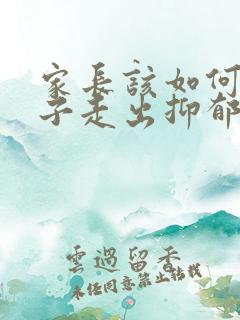 家長該如何
子走出抑郁
雲過留香
未经同意禁止转载